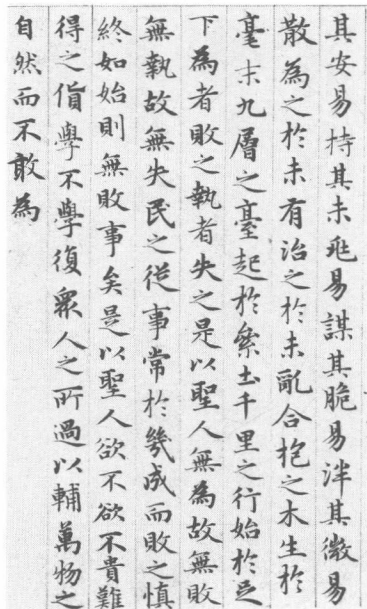 其安易持其未兆易謀其脆易泮其微易
散為之於未有治之於未亂合抱之木生於
毫末九層之臺起於絫土千里之行始於足
下為者敗之執者失之是以聖人無為故無敗
無執故無失民之從事常於幾成而敗之慎
終如始則無敗事矣是以聖人欲不欲不貴難
得之貨學不學復眾人之所過以輔萬物之
自然而不敢為